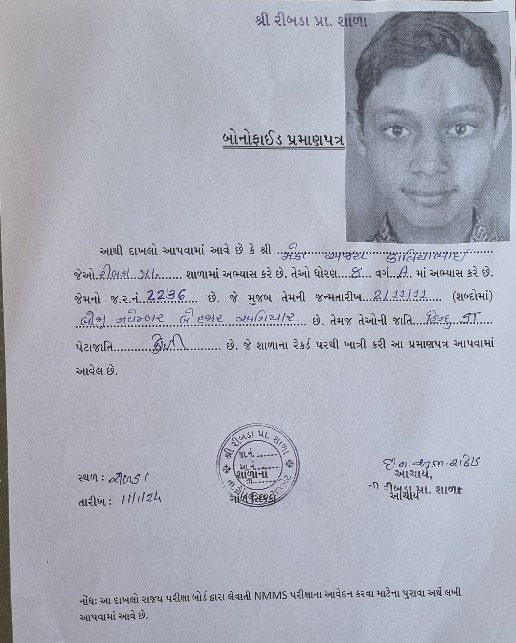 શ્રી રીબડા પ્રા. શાળા
બોનોફાઈડ પ્રમાણપત્ર
આથી દાખલો આપવામાં આવે છે કે શ્રી
જેઓ રીબડા પ્રા. શાળામાં અભ્યાસ કરે છે. તેઓ ધોરણ ૮ વર્ગ A માં અભ્યાસ કરે છે.
જેમનો જ.ર.નં. 2236 છે. જે મુજબ તેમની જન્મતારીખ 2/11/11 (શબ્દોમાં)
બીજી નવેમ્બર બે હજાર અગિયાર છે. તેમજ તેઓની જાતિ હિન્દુ
પેટાજાતિ કોળી છે. જે શાળાના રેકર્ડ પરથી ખાત્રી કરી આ પ્રમાણપત્ર આપવામાં
આવેલ છે.
શ્રી રીબડા પ્રા. શાળા
જા.નં.
આ.નં.
શાળાના
ગોળ સિક્કો
સ્થળ : રીબડા
તારીખ : 11/1/24
આચાર્ય,
રીબડા પ્રા. શાળા
આચાર્ય
નોંધઃ આ દાખલો રાજય પરીક્ષા બોર્ડ દ્વારા લેવાતી NMMS પરીક્ષાના આવેદન કરવા માટેના પુરાવા અર્થે લખી
આપવામાં આવે છે.